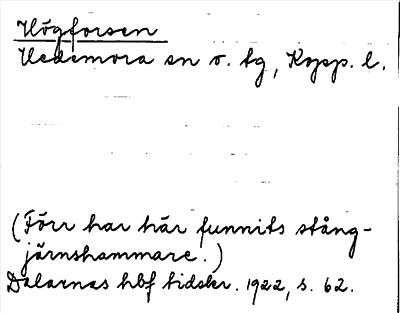 Högforsen
Hedemora sn o. tg, Kopp. l.
(Förr har här funnits stång-
järnshammare.)
Dalarnas hbf tidskr. 1922, s. 62.